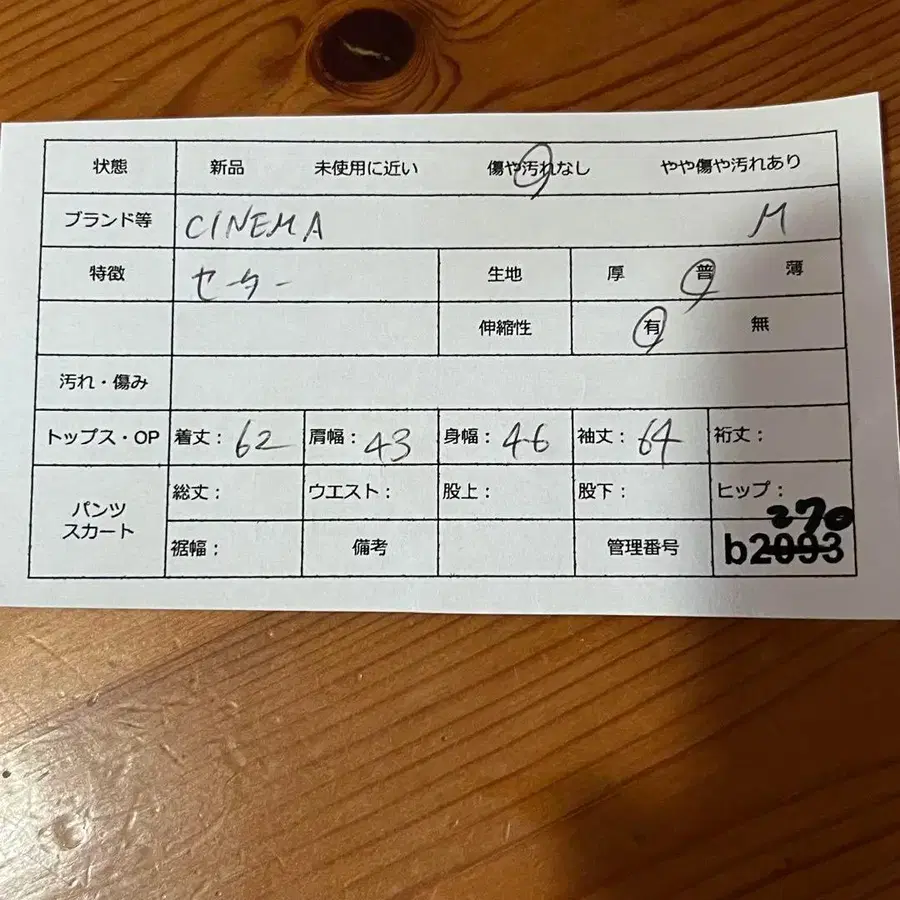 状態 新品 未使用に近い 傷や汚れなし やや傷や汚れあり
ブランド等 CINEMA M
特徴 セーター 生地 厚 普 薄
伸縮性 有 無
汚れ・傷み
トップス・OP 着丈： 62 肩幅： 43 身幅： 46 袖丈： 64 裄丈：
パンツ
スカート
総丈： ウエスト： 股上： 股下： ヒップ：
270
裾幅： 備考 管理番号 b2093